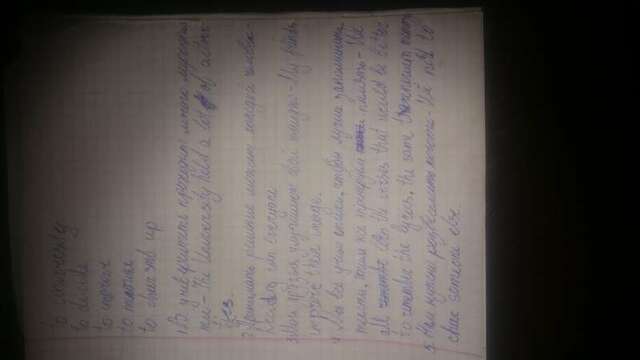 to university
to decide
to improve
to
to cheer smb up
1. В университете проходит много мероприя-
тий - The University held a lot of of activi-
ties.
2. Принимать решение может каждый человек -
can everyone
3. Мои друзья улучшают свой имидж - My friends
improve their image.
4. Мы все учим стихи, чтобы лучше запоминать
тексты, также память - We
all the verses that would be better
to remember the lyrics, the same memory
5. Нам нужно развеселить - We need to
cheer someone else.